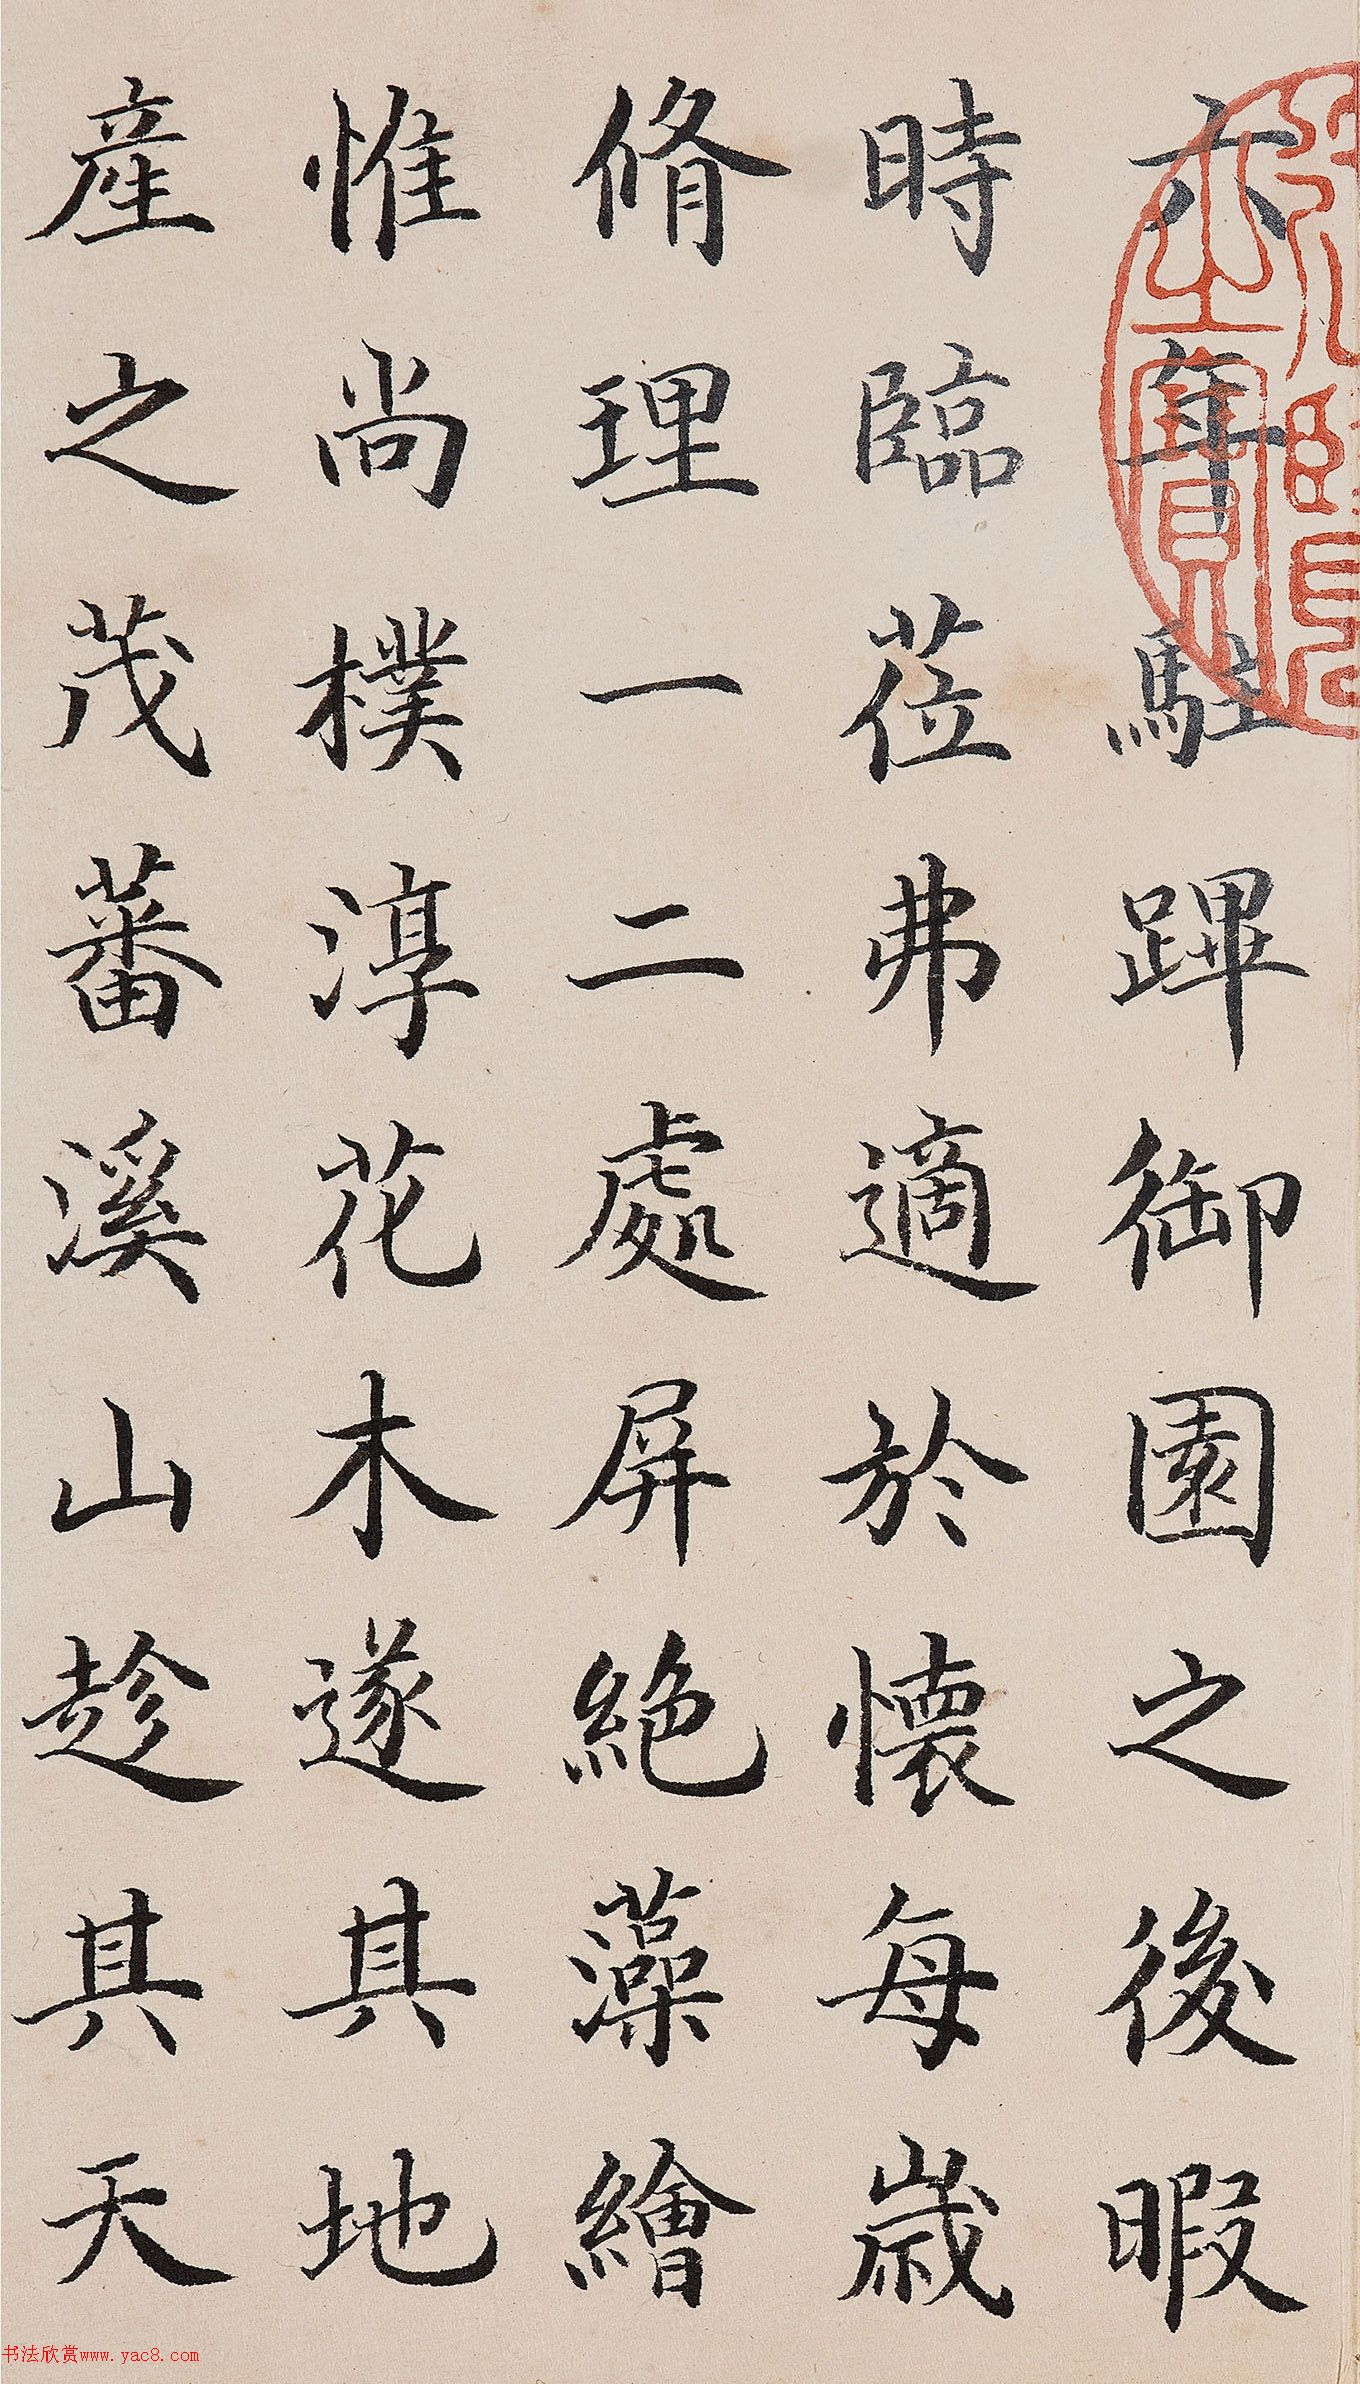 六年駐蹕御園之後暇
時臨莅弗適於懷每歲
脩理一二處屏絶藻繪
惟尚樸淳花木遂其地
產之茂蕃溪山趁其天
书法欣赏www.yac8.com